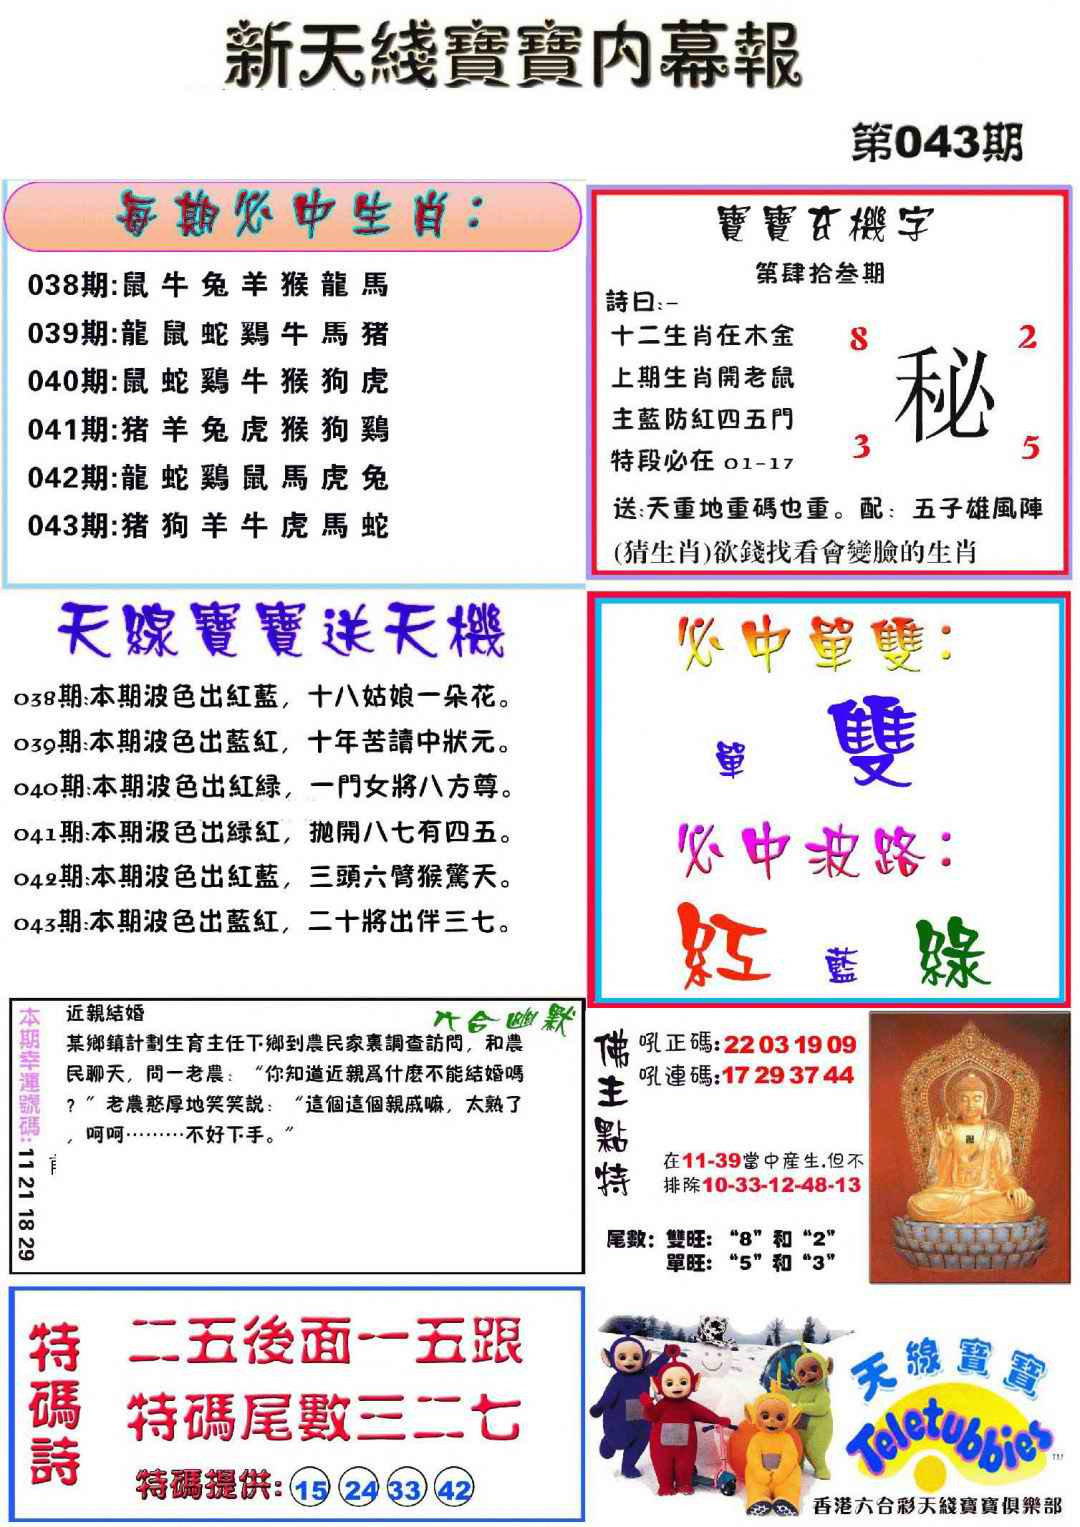 新天綫寶寶内幕報
第043期
每期必中生肖：
038期:鼠牛兔羊猴龍馬
039期:龍鼠蛇鷄牛馬猪
040期:鼠蛇鷄牛猴狗虎
041期:猪羊兔虎猴狗鷄
042期:龍蛇鷄鼠馬虎兔
043期:猪狗羊牛虎馬蛇
寶寶玄機字
第肆拾叁期
詩曰:-
十二生肖在木金
上期生肖開老鼠
主藍防紅四五門
特段必在 01-17
8 2
秘
3 5
送:天重地重碼也重。配：五子雄風陣
(猜生肖)欲錢找看會變臉的生肖
天線寶寶送天機
038期:本期波色出紅藍，十八姑娘一朵花。
039期:本期波色出藍紅，十年苦讀中狀元。
040期:本期波色出紅緑，一門女將八方尊。
041期:本期波色出緑紅，拋開八七有四五。
042期:本期波色出紅藍，三頭六臂猴驚天。
043期:本期波色出藍紅，二十將出伴三七。
必中單雙：
單 雙
必中波路：
紅 藍 綠
本期幸運號碼:11 21 18 29
六合幽默
近親結婚
某鄉鎮計劃生育主任下鄉到農民家裏調查訪問，和農
民聊天，問一老農：“你知道近親爲什麽不能結婚嗎
？”老農憨厚地笑笑説：“這個這個親戚嘛，太熟了
，呵呵………不好下手。”
佛主點特
吼正碼:22 03 19 09
吼連碼:17 29 37 44
在11-39當中産生.但不
排除10-33-12-48-13
尾數：雙旺：“8”和“2”
單旺：“5”和“3”
特碼詩
二五後面一五跟
特碼尾數三二七
特碼提供: 15 24 33 42
天線寶寶
Teletubbies
TM
香港六合彩天綫寶寶俱樂部